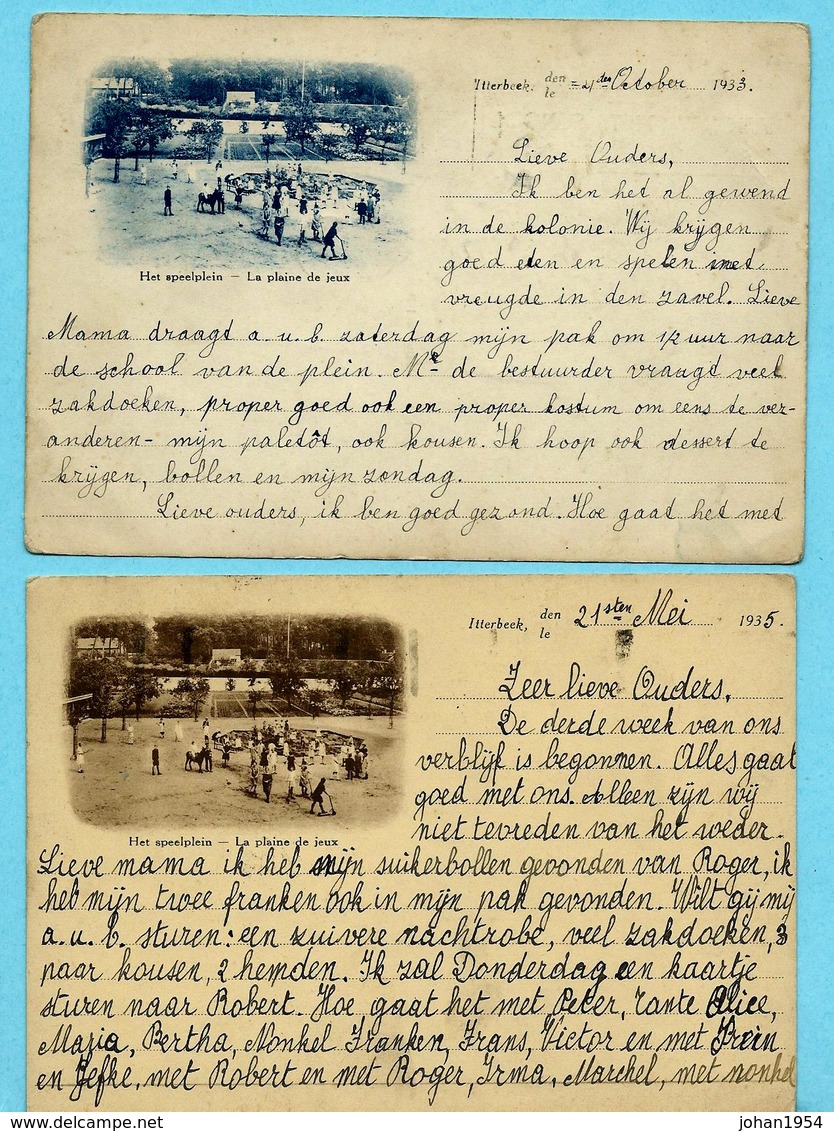 Itterbeek, den le 4den October 1933.
Lieve Ouders,
Ik ben het al gewend
in de kolonie. Wij krijgen
goed eten en spelen met
vreugde in den zavel. Lieve
Het speelplein — La plaine de jeux
Mama draagt a.u.b. zaterdag mijn pak om 12 uur naar
de school van de plein. Mr de bestuurder vraagt veel
zakdoeken, proper goed ook een proper kostum om eens te ver-
anderen- mijn paletôt, ook kousen. Ik hoop ook dessert te
krijgen, bollen en mijn zondag.
Lieve ouders, ik ben goed gezond. Hoe gaat het met
Itterbeek, den le 21sten Mei 1935.
Zeer lieve Ouders,
De derde week van ons
verblijf is begonnen. Alles gaat
goed met ons. Alleen zijn wij
niet tevreden van het weder.
Het speelplein — La plaine de jeux
Lieve mama ik heb mijn suikerbollen gevonden van Roger, ik
heb mijn twee franken ook in mijn pak gevonden. Wilt gij mij
a.u.b. sturen: een zuivere nachtrobe, veel zakdoeken, 3
paar kousen, 2 hemden. Ik zal Donderdag een kaartje
sturen naar Robert. Hoe gaat het met Peter, Tante Alice,
Maria, Bertha, Nonkel Franken, Frans, Victor en met
en Jefke, met Robert en met Roger, Irma, Marchel, met nonkel
johan1954